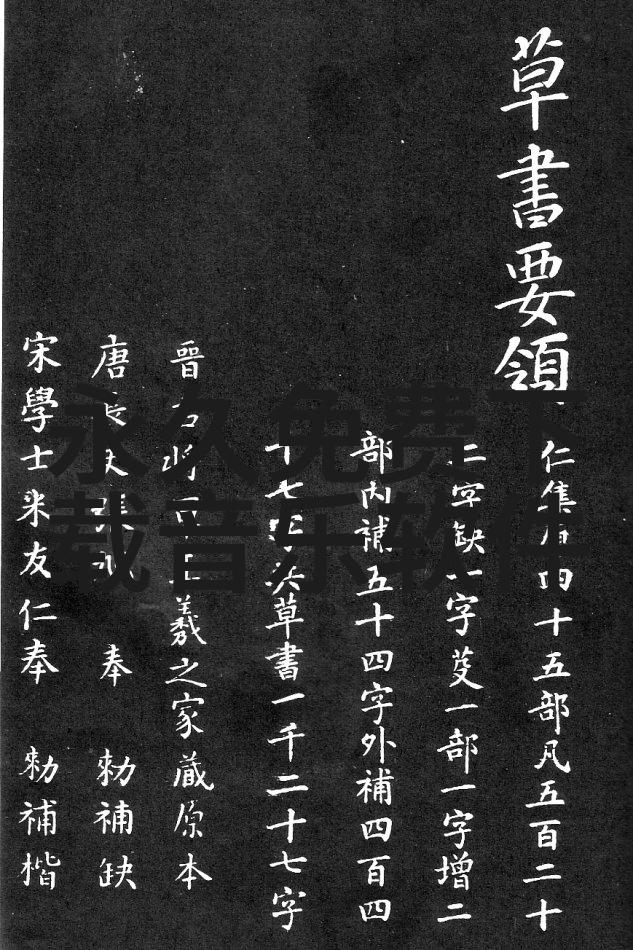 草書要領
仁集四十五部凡五百二十
二字缺一字芟一部一字增二
部内補五十四字外補四百四
十七字共草書一千二十七字
晉右將軍王羲之家藏原本
唐長史張旭 奉 勑補缺
宋學士米友仁奉 勑補楷
永久免费下
载音乐软件